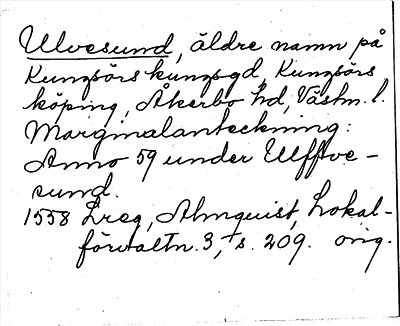 Ulvesund, äldre namn på
Kungsörs kungsgd, Kungsörs
köping, Åkerbo hd, Västm. l.
Marginalanteckning:
Anno 59 under Ulfftve-
sund.
1558 Lreg, Almquist, Lokal-
förvaltn. 3, s. 209. orig.